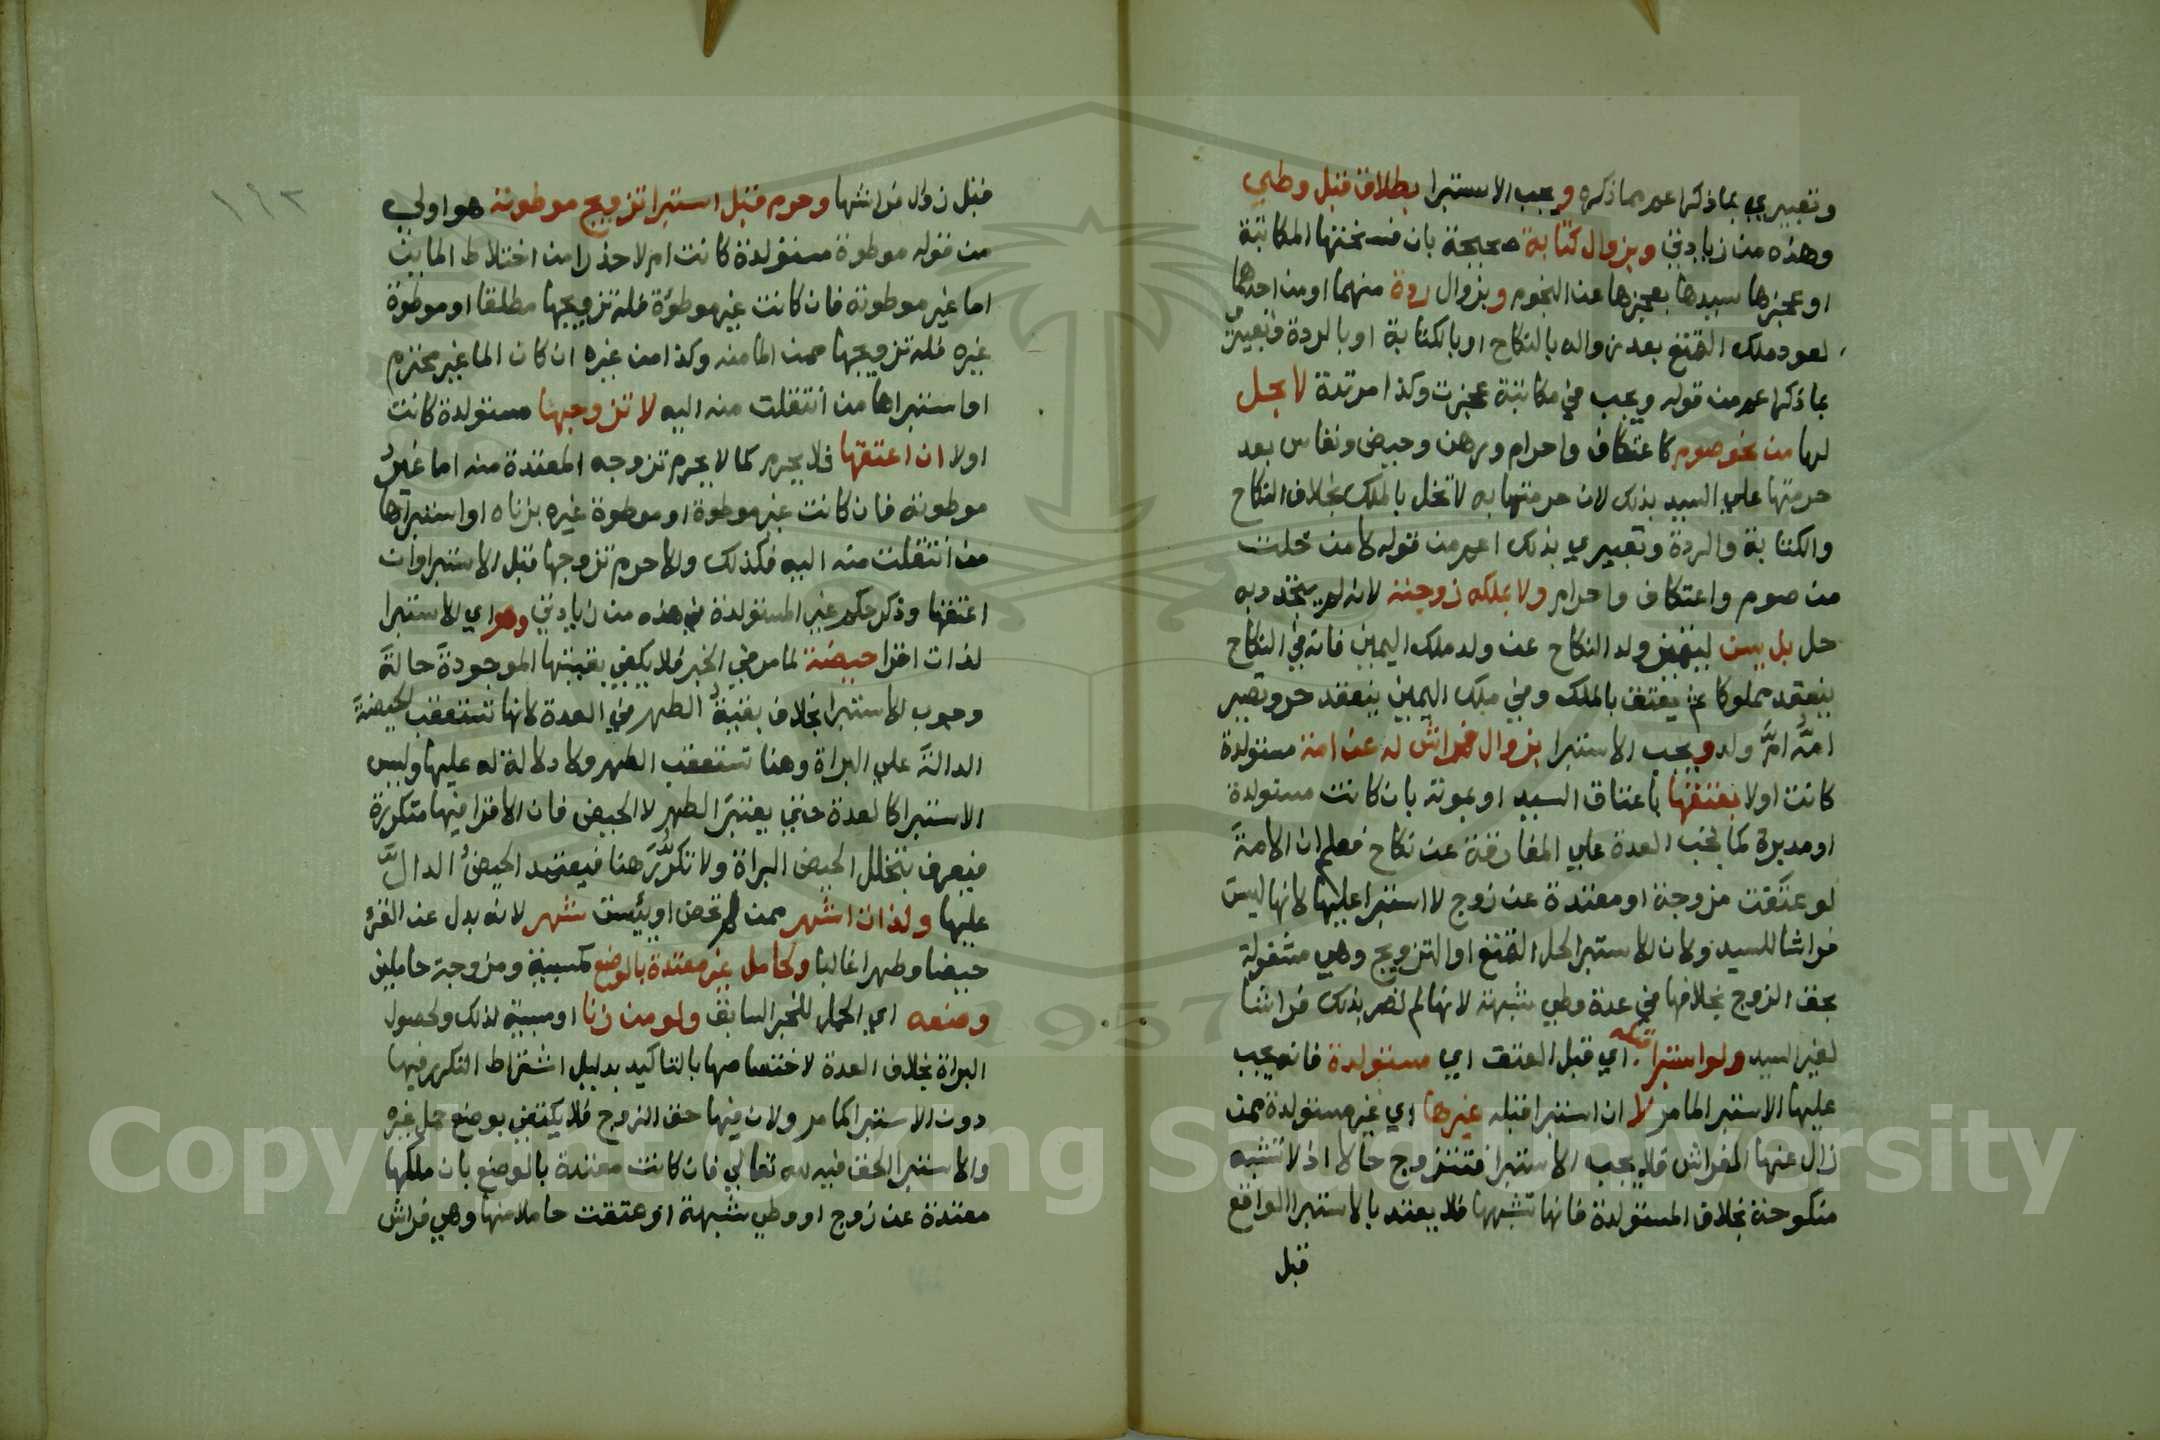 وتعبيري بما ذكر اعم مما ذكره ويجب الاستبرا بطلاق قبل وطي
وهذه من زيادتي وبزوال كتابة صحيحة بان فسختها المكاتبة
او عجزها سيدها بعجزها عن النجوم وبزوال ردة منهما او من احدهما
لعود ملك التمتع بعد زواله بالنكاح او بالكتابة او بالردة وتعبيري
بما ذكر اعم من قوله ويجب في مكاتبة عجزت وكذا مرتدة لا بحل
لها من نحو صوم كاعتكاف واحرام ورهن وحيض ونفاس بعد
حرمتها علي السيد بذلك لان حرمتها به لا تخل بالملك بخلاف النكاح
والكتابة والردة وتعبيري بذلك اعم من قوله لا من خلت
من صوم واعتكاف واحرام ولا بملكه زوجته لانه لم يتجدد به
حل بل يسن ليتميز ولد النكاح عن ولد ملك اليمين فانه في النكاح
ينعقد مملوكا ثم يعتق بالملك وفي ملك اليمين ينعقد حر وتصير
امه ام ولد ويجب الاستبرا بزوال فراش له عن امته مستولدة
كانت اولا بعتقها باعتاق السيد او بموته بان كانت مستولدة
او مدبرة كما تجب العدة علي المفارقة عن نكاح فعلم ان الامة
لو عتقت مزوجة او معتدة عن زوج لا استبرا عليها لانها ليست
فراشا للسيد ولان الاستبرا لحل التمتع او التزويج وهي مشغولة
بحق الزوج بخلافها في عدة وطي شبهة لانها لم تصر بذلك فراشا
لغير السيد ولو استبرا قبله اي قبل العتق اي مستولدة فانه يجب
عليها الاستبرا لما مر لا ان استبرا قبله غيرها اي غير مستولدة ممن
زال عنها الفراش فلا يجب الاستبرا فتتزوج حالا اذ لا تشبه
منكوحة بخلاف المستولدة فانها تشبهها فلا يعتد بالاستبرا الواقع
قبل
١٩٢
قبل زوال فراشها وحرم قبل استبرا تزويج موطوته هو اولي
من قوله موطوة مستولدة كانت ام لا حذرا من اختلاط المايين
اما غير موطوته فان كانت غير موطوة فله تزويجها مطلقا او موطوة
غيره فله تزويجها ممن الما منه وكذا من غيره ان كان الما غير محترم
او استبراها من انتقلت منه اليه لا تزوجها مستولدة كانت
اولا ان اعتقها فلا يحرم كما لا يحرم تزوجه المعتدة منه اما غير
موطوته فان كانت غير موطوة او موطوة غيره بزناه او استبراها
من انتقلت منه اليه فكذلك والا حرم تزوجها قبل الاستبرا وان
اعتقها وذكر حكم غير المستولدة في هذه من زيادتي وهو اي الاستبرا
لذات اقرا حيضة لما مر في الخبر فلا يكفي بقيتها الموجودة حالة
وجوب الاستبرا بخلاف بقية الطهر في العدة لانها تستعقب الحيضة
الدالة علي البراة وهنا تستعقب الطهر ولا دلالة له عليها وليس
الاستبرا كالعدة حتي يعتبر الطهر لا الحيض فان الاقرا فيها متكررة
فيعرف بتخلل الحيض البراة ولا تكرر هنا فيعتمد الحيض الدال
عليها ولذات اشهر ممن لم تحض او يئست شهر لانه بدل عن القرء
حيضا وطهرا غالبا ولحامل غير معتدة بالوضع كمسبية ومزوجة حاملين
وضعه اي الحمل للخبر السابق ولو من زنا او مسبية لذلك ولحصول
البراة بخلاف العدة لاختصاصها بالتاكيد بدليل اشتراط التكرر فيها
دون الاستبرا كما مر ولان فيها حق الزوج فلا يكتفي بوضع حمل غيره
والاستبرا الحق فيه لله تعالي فان كانت معتدة بالوضع بان ملكها
معتدة عن زوج او وطي شبهة او عتقت حاملا منها وهي فراش
Copyright © King Saud University
1957